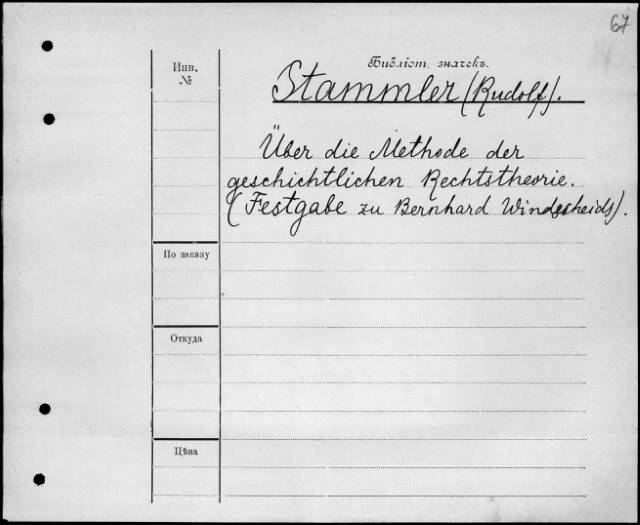 67
Библіот. значекъ.
Инв.
№
Stammler (Rudolf).
Über die Methode der
geschichtlichen Rechtstheorie.
(Festgabe zu Bernhard Windesheids).
По заказу
Откуда
Цѣна